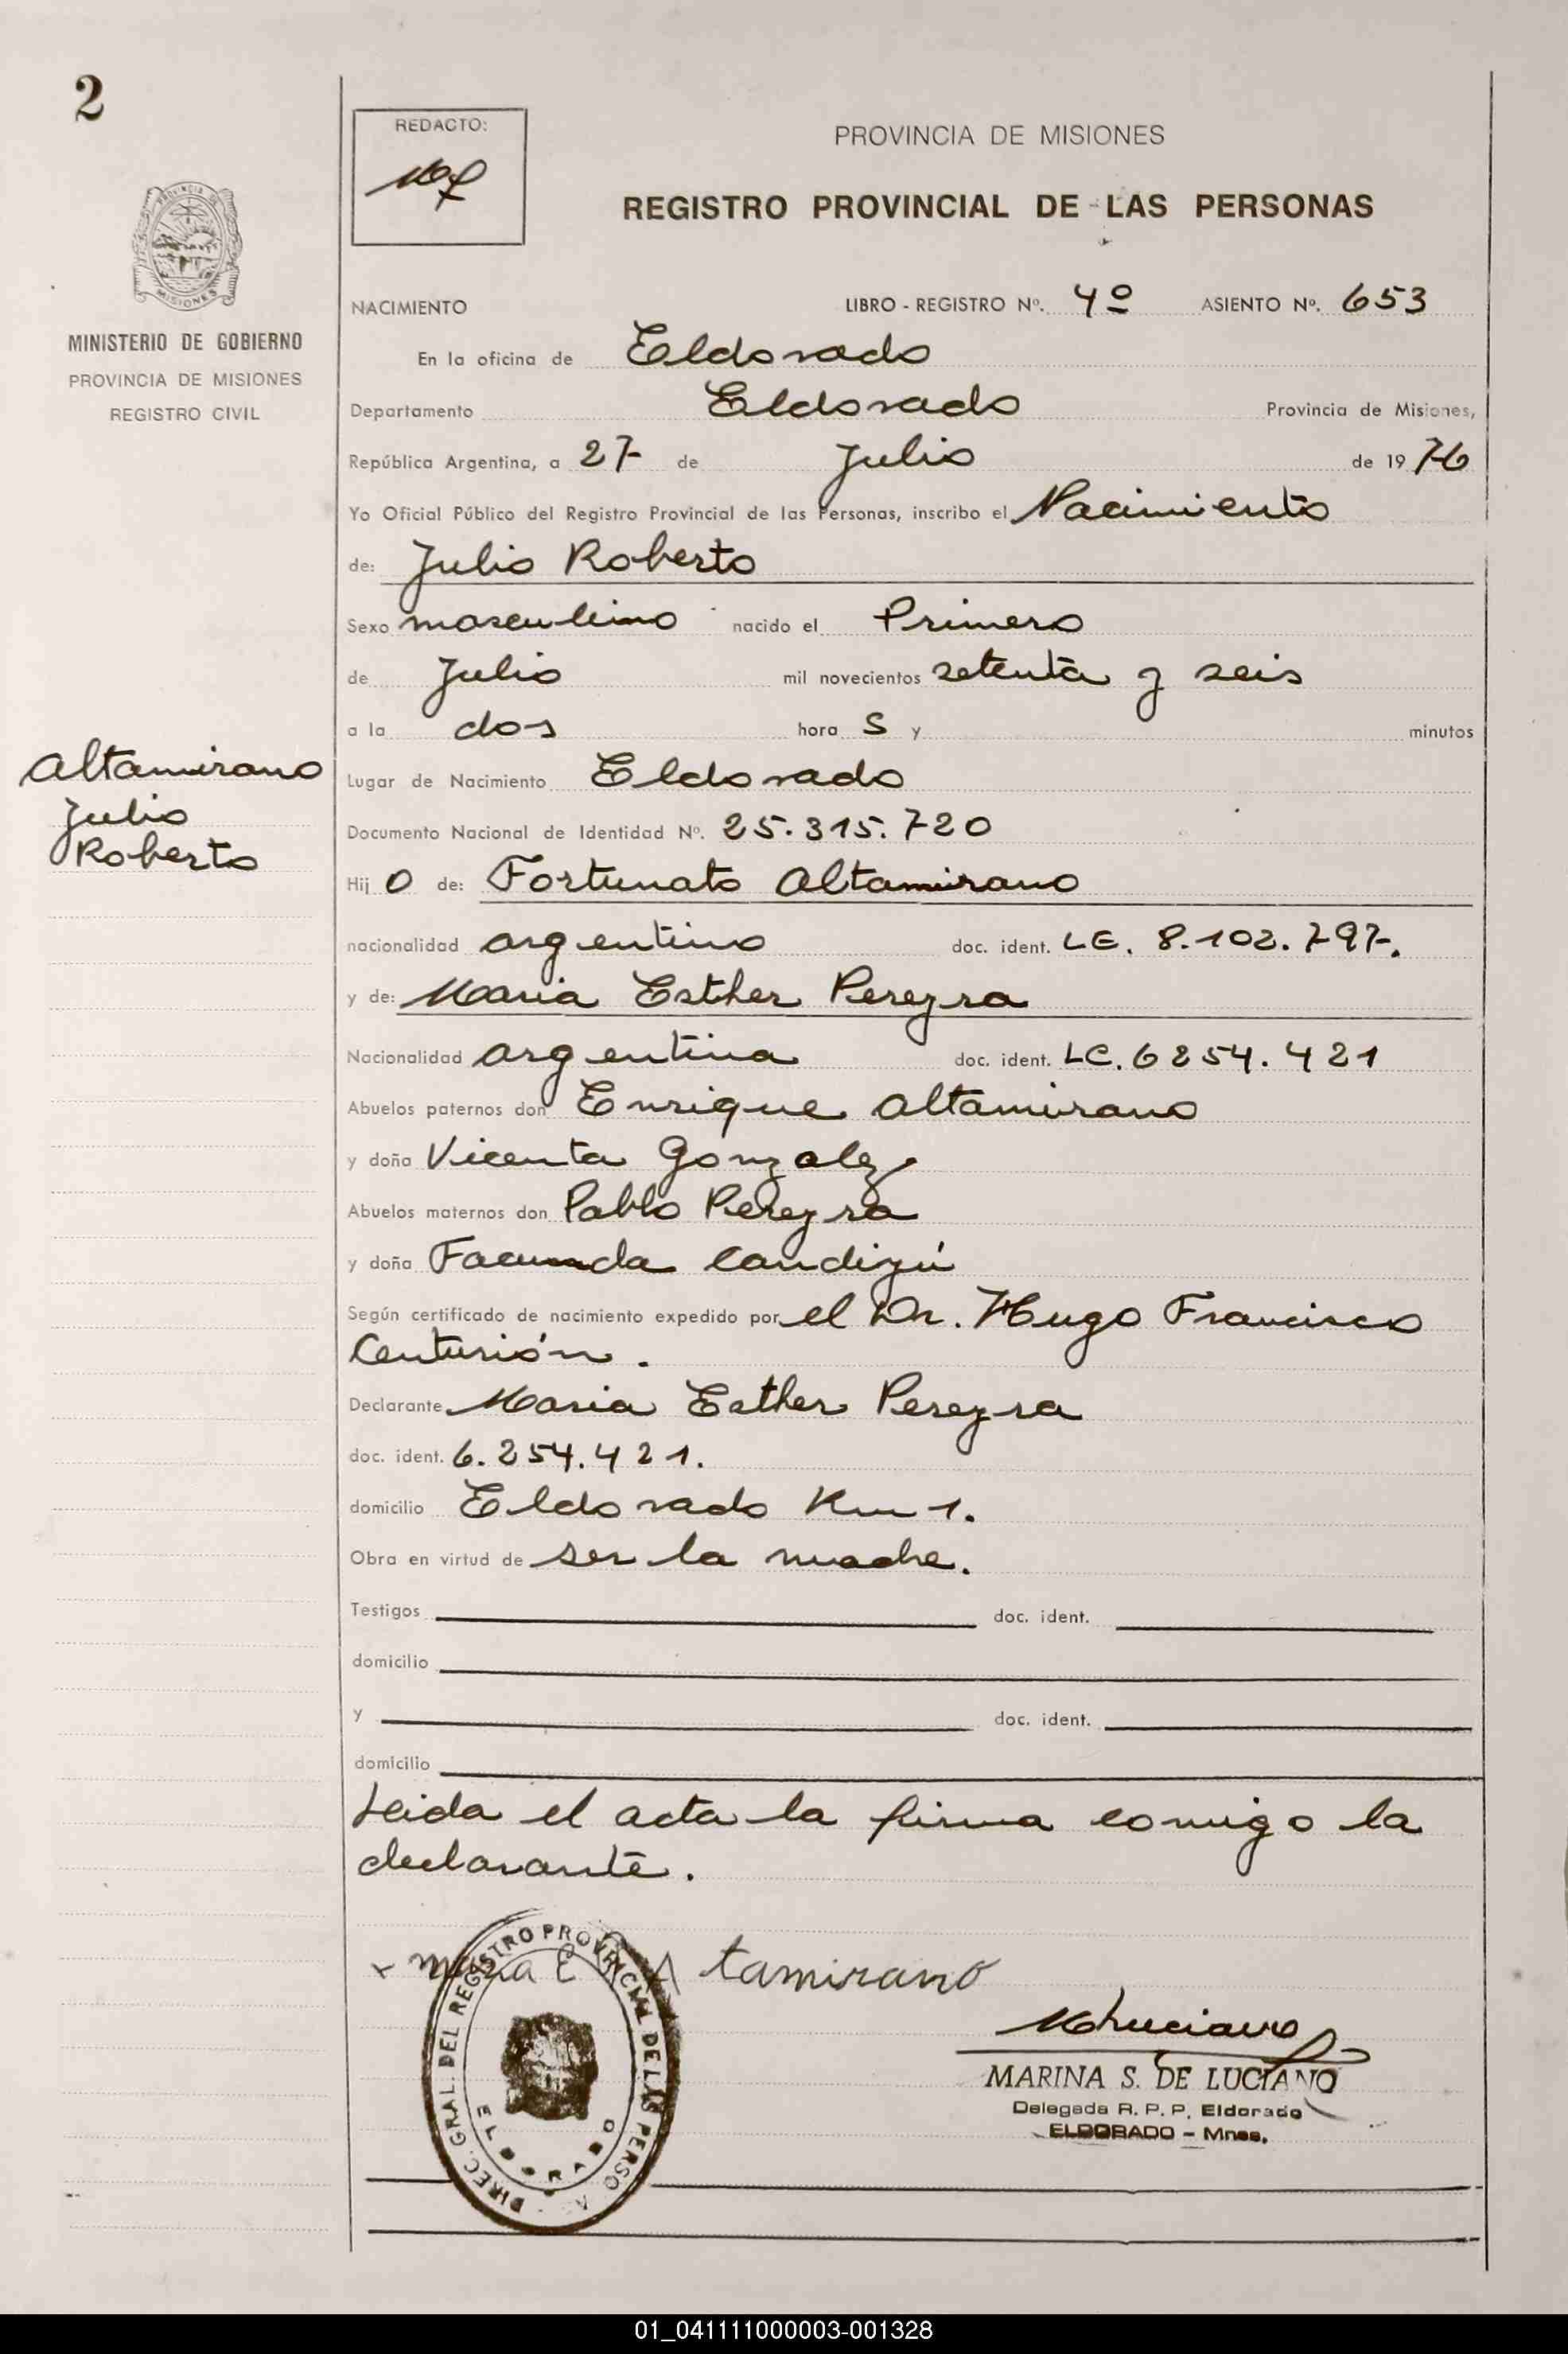 2
REDACTO:
PROVINCIA DE MISIONES
REGISTRO PROVINCIAL DE LAS PERSONAS
PROVINCIA DE
MISIONES
MINISTERIO DE GOBIERNO
PROVINCIA DE MISIONES
REGISTRO CIVIL
NACIMIENTO LIBRO - REGISTRO Nº. 4º ASIENTO Nº. 653
En la oficina de Eldorado
Departamento Eldorado Provincia de Misiones,
República Argentina, a 27 de Julio de 19 76
Yo Oficial Público del Registro Provincial de las Personas, inscribo el Nacimiento
de: Julio Roberto
Sexo masculino nacido el Primero
de Julio mil novecientos setenta y seis
a la dos hora s y minutos
Altamirano
Julio
Roberto
Lugar de Nacimiento Eldorado
Documento Nacional de Identidad Nº. 25.315.720
Hij o de: Fortunato Altamirano
nacionalidad argentino doc. ident. LE. 8.102.797.
y de: Maria Esther Pereyra
Nacionalidad argentina doc. ident. LC. 6254.421
Abuelos paternos don Enrique Altamirano
y doña Vicenta Gonzalez
Abuelos maternos don Pablo Pereyra
y doña Facunda Candizú
Según certificado de nacimiento expedido por el Dr. Hugo Francisco
Centurión.
Declarante Maria Esther Pereyra
doc. ident. 6.254.421.
domicilio Eldorado Km 1.
Obra en virtud de ser la madre.
Testigos doc. ident.
domicilio
y doc. ident.
domicilio
Leida el acta la firma comigo la
declarante.
x maria E A tamirano
DIREC. GRAL. DEL REGISTRO PROVINCIAL DE LAS PERSONAS
ELDORADO
MLuciano
MARINA S. DE LUCIANO
Delegada R. P. P. Eldorado
ELDORADO - Mnes.
01_041111000003-001328